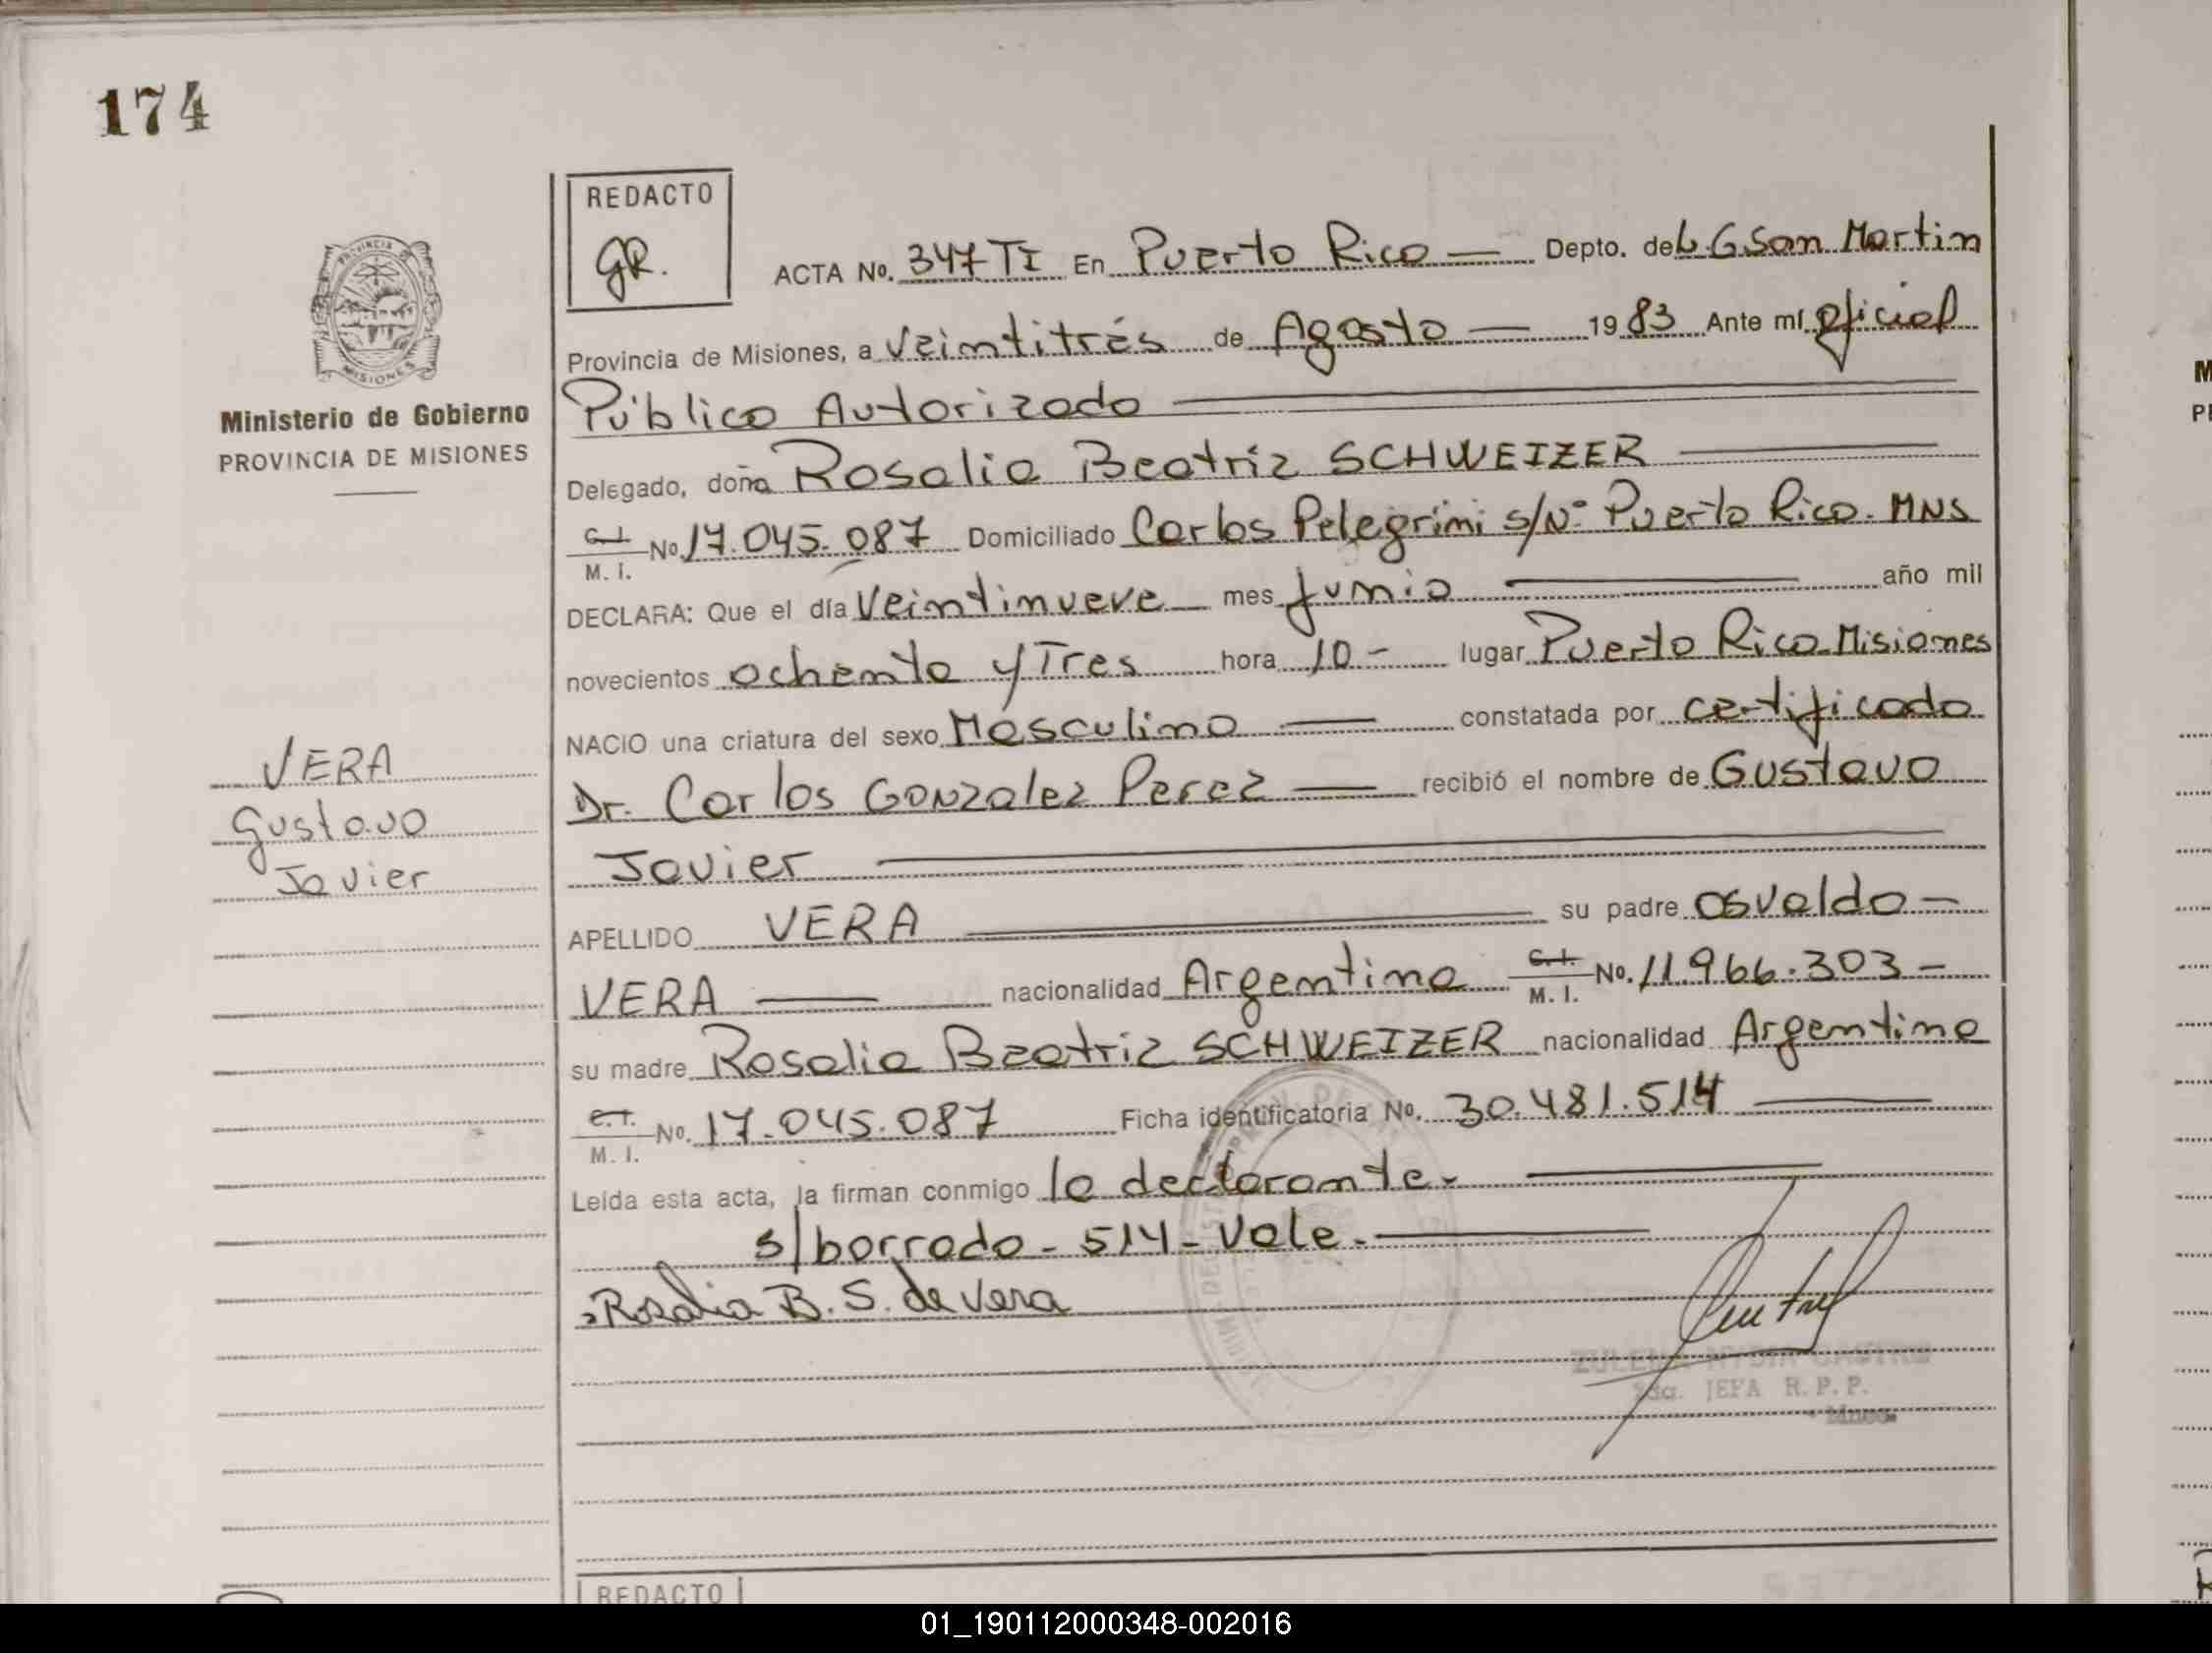 174
REDACTO
GR.
PROVINCIA
MISIONES
Ministerio de Gobierno
PROVINCIA DE MISIONES
ACTA No. 347 TI En Puerto Rico — Depto. de L. G San Martin
Provincia de Misiones, a veintitrés de Agosto — 1983 Ante mí Oficial
Público Autorizado
Delegado, doña Rosalia Beatriz SCHWEIZER
C.I. M. I. No. 17.045.087 Domiciliado Carlos Pelegrini s/Nº Puerto Rico. MNS
DECLARA: Que el día Veintinueve mes Junio año mil
novecientos ochenta y Tres hora 10 - lugar Puerto Rico Misiones
NACIO una criatura del sexo Masculino — constatada por certificado
Dr. Carlos GONZALEZ Perez — recibió el nombre de Gustavo
Javier
APELLIDO VERA su padre Osvaldo -
VERA — nacionalidad Argentina C.I. M. I. No. 11.966.303 -
su madre Rosalia Beatriz SCHWEIZER nacionalidad Argentina
C.I. M. I. No. 17.045.087 Ficha identificatoria No. 30.481.514
Leída esta acta, la firman conmigo la declarante.
s/borrado - 514 - Vale.
Rosalia B. S. de Vera
Sda. JEFA R. P. P.
VERA
Gustavo
Javier
REDACTO
01_190112000348-002016